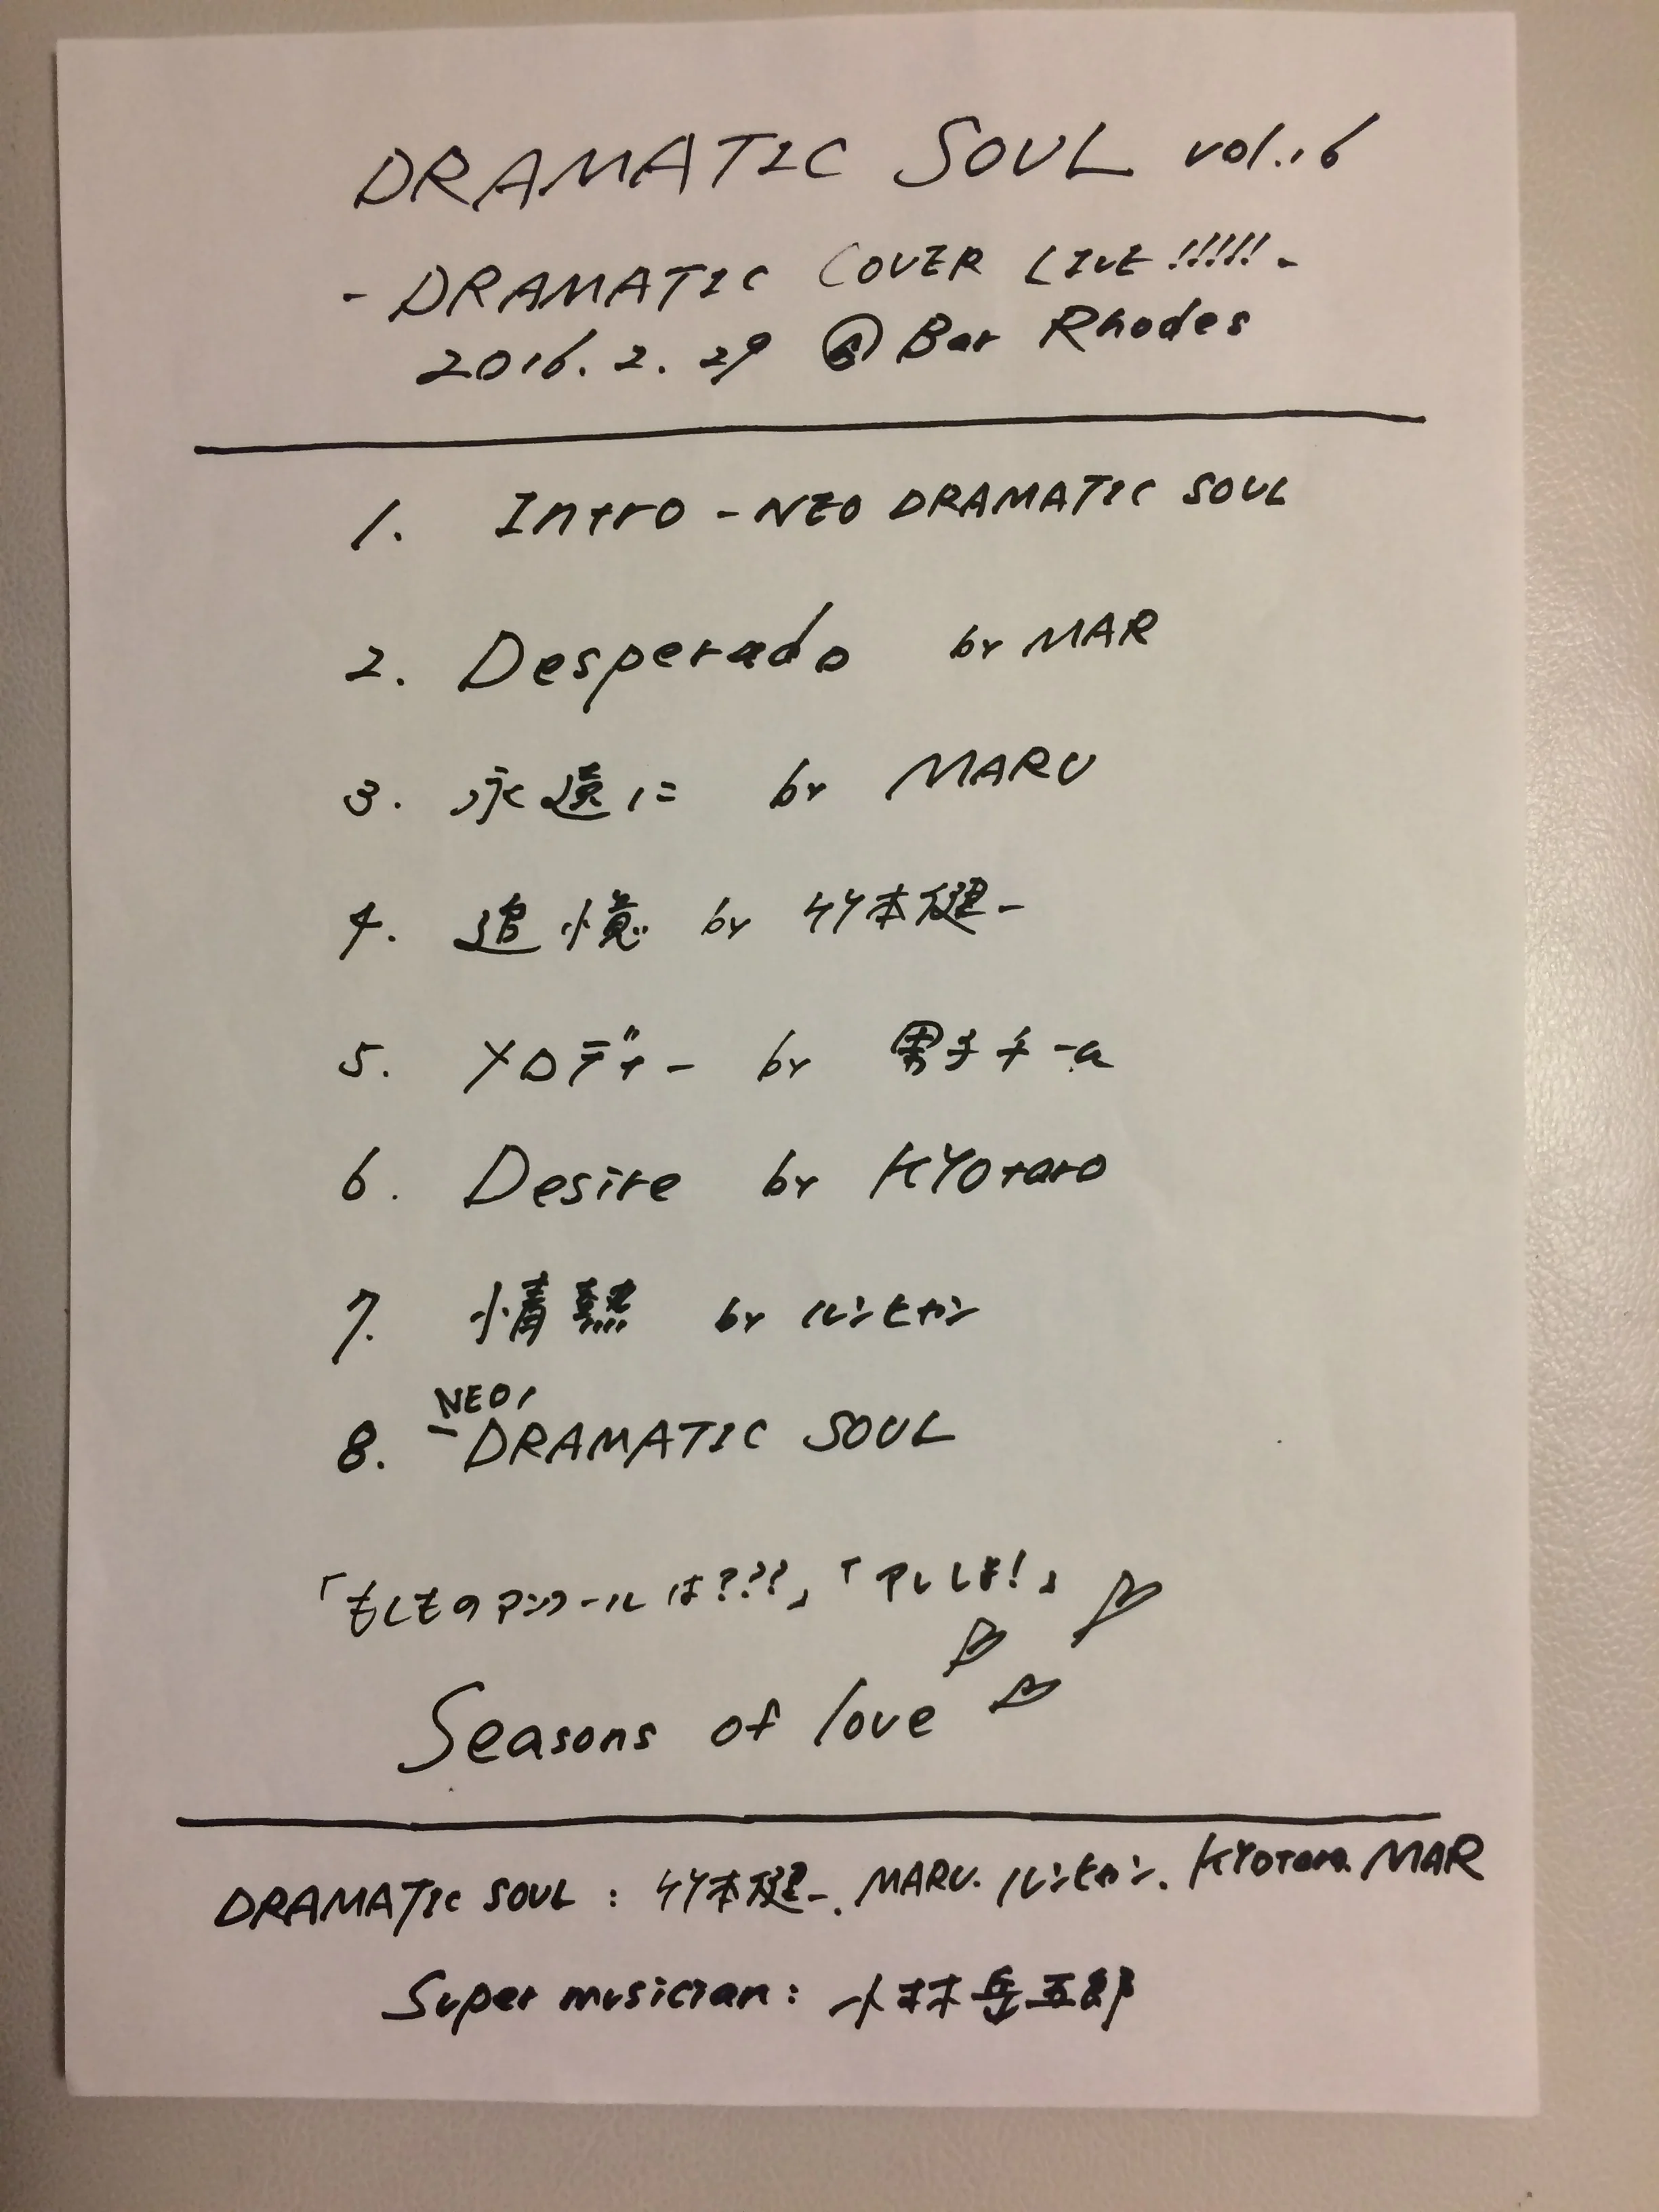 DRAMATIC SOUL vol.16
- DRAMATIC COVER LIVE!!!!! -
2016. 2. 29 @ Bar Rhodes
1. Intro - NEO DRAMATIC SOUL
2. Desperado by MAR
3. 永遠に by MARU
4. 追憶 by 竹本健一
5. メロディー by 男子チーム
6. Desire by KYOtaro
7. 情熱 by ルンヒャン
8. -NEO, DRAMATIC SOUL
「もしものアンコールは???」「アレしよ!」
Seasons of love
DRAMATIC SOUL : 竹本健一. MARU. ルンヒャン. KYOtaro. MAR
Super musician: 小林岳五郎